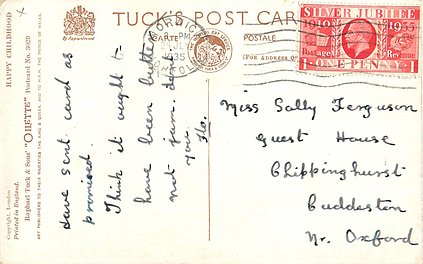 TUCK'S POST CARD
CARTE POSTALE
(FOR ADDRESS ONLY)
By Appointment
HAPPY CHILDHOOD
Raphael Tuck & Sons' "OILETTE" Postcard No. 3629
ART PUBLISHERS TO THEIR MAJESTIES THE KING & QUEEN, AND TO H.R.H. THE PRINCE OF WALES.
Copyright. London
Printed in England.
SILVER JUBILEE
1910 1935
Postage Revenue
1D ONE PENNY 1D
PM
JY
1935
Have sent card as
promised.
I think it ought to
have been butter
not jam. 
you.
Flo.
Miss Sally Ferguson
Guest House
Chippinghurst
Cuddesdon
Nr. Oxford